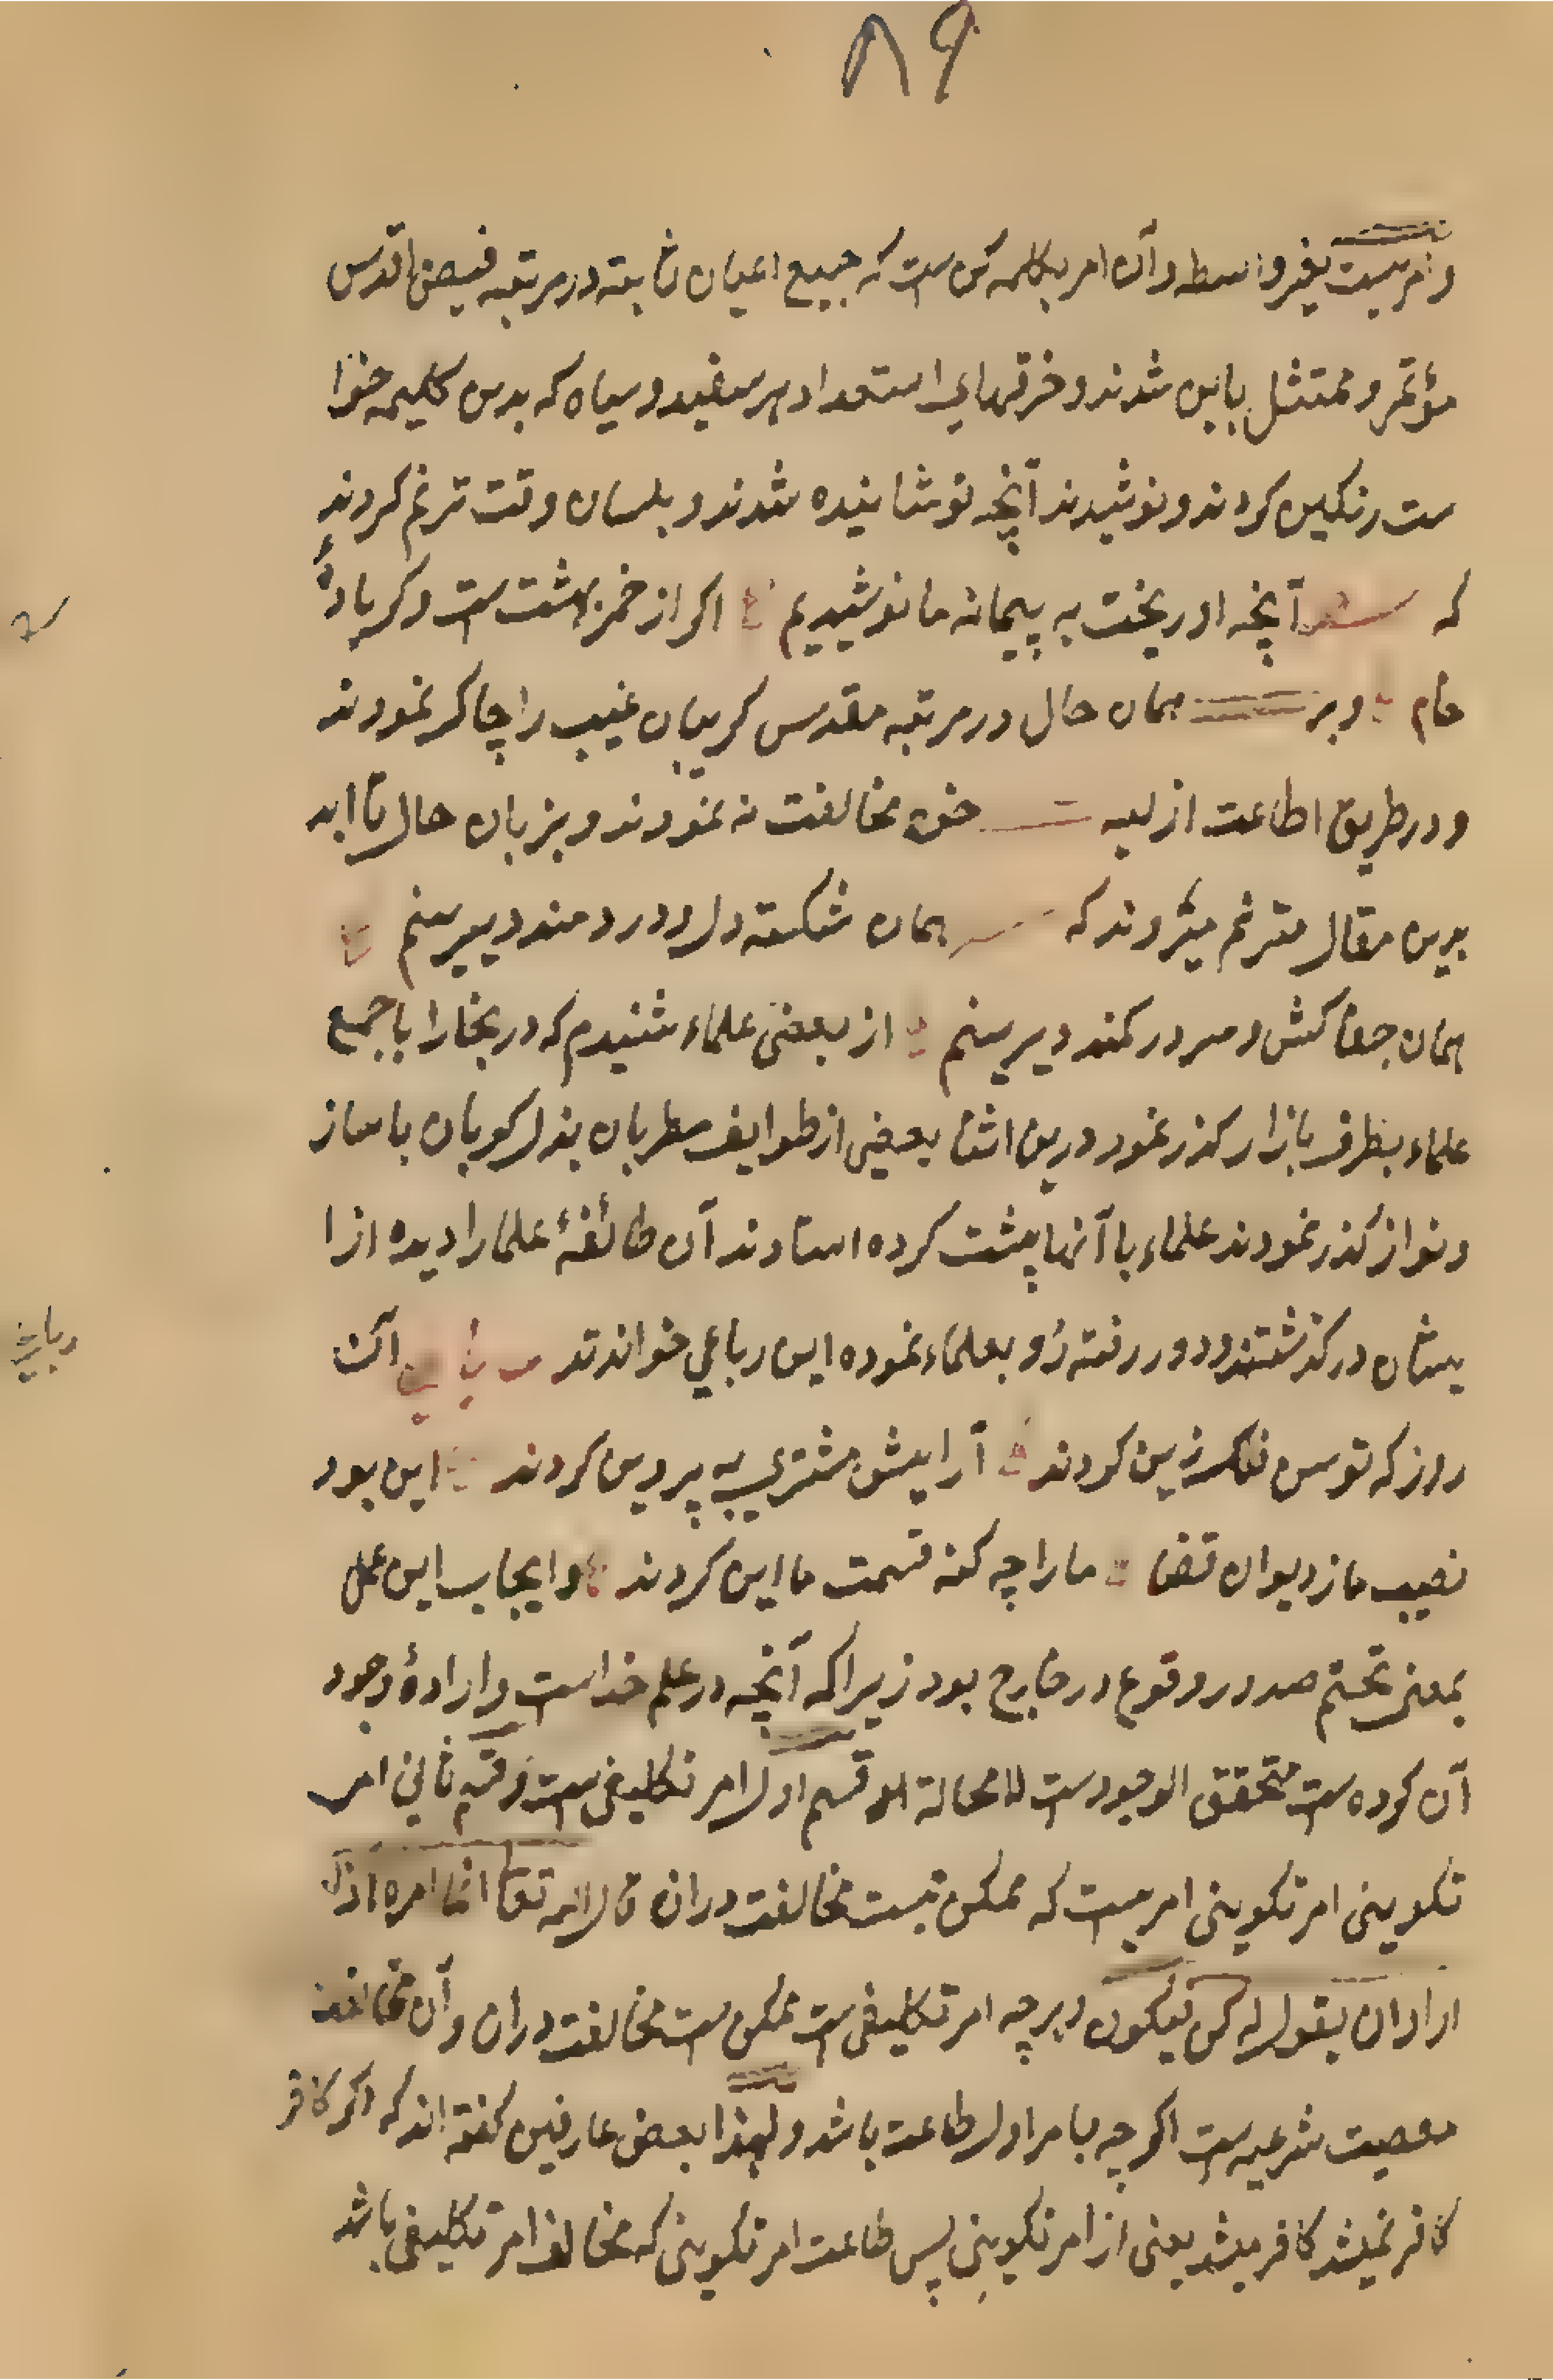 ۸۹
و امریست بغیر واسطه و آن امر بکلمه کن ست که جمیع اعیان ثابته در مرتبه فیض اقدس
مؤتمر و ممتثل باین شدند و خرقهای استعداد هر سفید و سیاه که بدین کلیمه خوا
ست رنکین کردند و نوشیدند آنچه نوشانیده شدند و بلسان وقت ترنم کردند
که شعر آنچه او ریخت به پیمانه ما نوشیدیم اکر از خمر بهشت ست و کر بادهٔ
خام و بر همان حال در مرتبه مقدس کریبان غیب را چاک نمودند
و در طریق اطاعت ازلیه خود مخالفت نه نمودند و بزبان حال تا ابد
بدین مقال مترنم میکردند که همان شکسته دل و دردمند دیرینم
همان جفا کش و سر در کمند دیرینم از بعضی علماء شنیدم که در بخارا با جمع
علماء بطرف بازار کذر نمود درین اثنا بعضی از طوایف مطربان بذل کویان با ساز
و نواز کذر نمودند علماء با آنها پشت کرده استادند آن طائفهٔ علما را دیده از ا
یشان در کذشتند و دور رفته رو بعلماء نموده این رباعی خواندند رباعی آن
روز که توسن فلک زین کردند آرایش مشتری به پروین کردند این بود
نصیب ما ز دیوان قضا ما را چه کنه قسمت ما این کردند و ایجاب این عمل
بمعنی تحتم صدور و وقوع در خارج بود زیرا که آنچه در علم خداست و ارادهٔ وجود
آن کرده ست متحقق الوجودست لا محالة قسم اول امر تکلیفی ست و قسم ثانی امر
تکوینی امر تکوینی امریست که ممکن نیست مخالفت در ان قال الله تعا انما امره اذا
اراد ان یقول له کن فیکون و هرچه امر تکلیفی ست ممکن ست مخالفت دران و آن مخالفت
معصیت شرعیه ست اکرچه بامر اول طاعت باشد و لهذا بعض عارفین کفته اند که اکر کافر
کافر نمیشد کافر میشد یعنی از امر تکوینی پس طاعت امر تکوینی که مخالف امر تکلیفی باشد